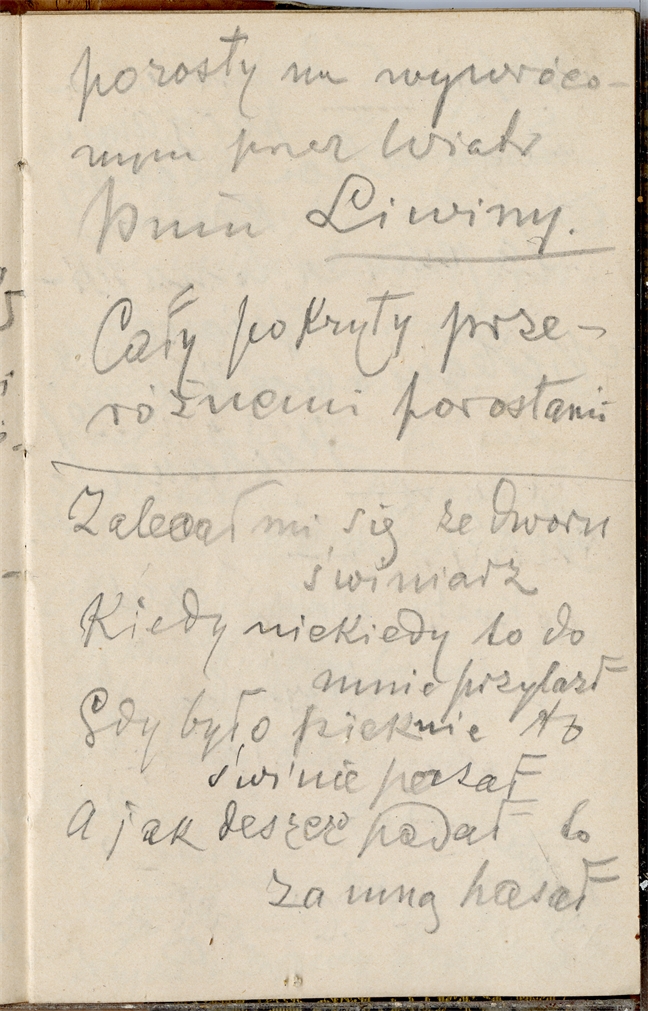 porosty na wywróco-
nym przez wiatr
pniu Liwiny.
Cały pokryty prze-
różnemi porostami
Zalecał mi się ze dworu
świniarz
Kiedy niekiedy to do
mnie przylazł
Gdy było pieknie to
świnie pasał
A jak deszcz padał to
za mną hasał